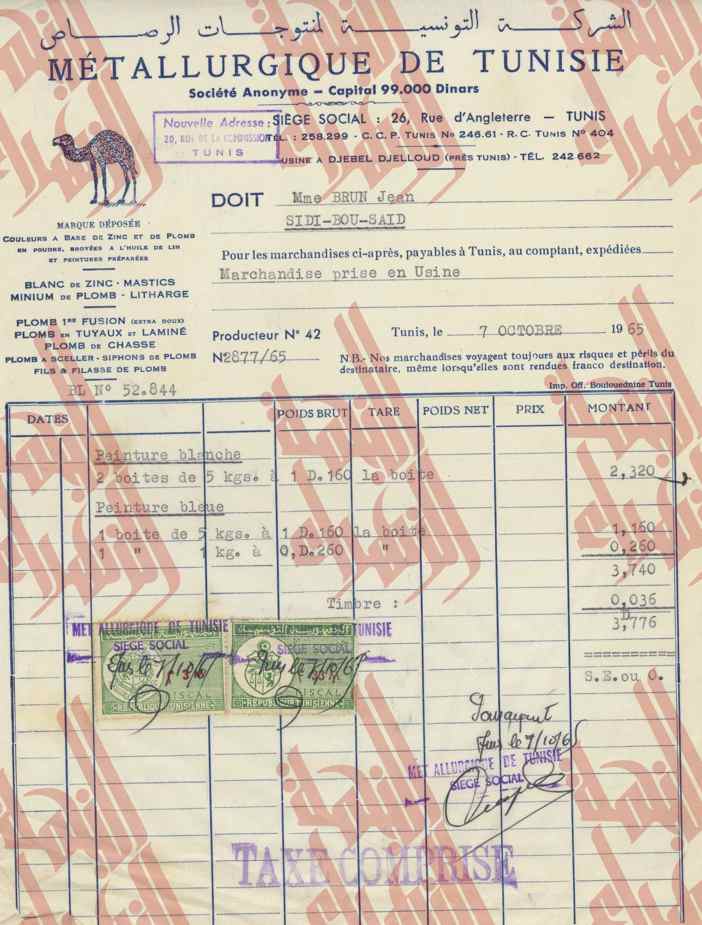 الشركة التونسية لمنتوجات الرصاص
MÉTALLURGIQUE DE TUNISIE
Société Anonyme – Capital 99.000 Dinars
Nouvelle Adresse:
20, RUE DE LA COMMISSION
TUNIS
SIÈGE SOCIAL : 26, Rue d'Angleterre – TUNIS
TÉL. : 258.299 - C.C.P. TUNIS No 246.61 - R.C. TUNIS No 404
USINE A DJEBEL DJELLOUD (PRÈS TUNIS) - TÉL. 242 662
MARQUE DÉPOSÉE
COULEURS A BASE DE ZINC ET DE PLOMB
EN POUDRE, BROYÉES A L'HUILE DE LIN
ET PEINTURES PRÉPARÉES
BLANC DE ZINC - MASTICS
MINIUM DE PLOMB - LITHARGE
PLOMB 1RE FUSION (EXTRA DOUX)
PLOMB EN TUYAUX ET LAMINÉ
PLOMB DE CHASSE
PLOMB A SCELLER - SIPHONS DE PLOMB
FILS & FILASSE DE PLOMB
BL N° 52.844
DOIT Mme BRUN Jean
SIDI-BOU-SAID
Pour les marchandises ci-après, payables à Tunis, au comptant, expédiées
Marchandise prise en Usine
Producteur N° 42
Tunis, le 7 OCTOBRE 1965
N°2877/65
N.B.- Nos marchandises voyagent toujours aux risques et périls du
destinataire, même lorsqu'elles sont rendues franco destination.
Imp. Off. Bouloudnine Tunis
DATES POIDS BRUT TARE POIDS NET PRIX MONTANT
Peinture blanche
2 boites de 5 kgs. à 1 D.160 la boite 2,320
Peinture bleue
1 boite de 5 kgs. à 1 D.160 la boite 1,160
1 " 1 kg. à 0,D.260 " 0,260
3,740
Timbre : 0,036
D
3,776
==========
S.E.ou O.
METALLURGIQUE DE TUNISIE
SIEGE SOCIAL
SIEGE SOCIAL
TUNISIE
Tunis le 7/10/65
Tunis le 7/10/65
FISCAL
RÉPUBLIQUE TUNISIENNE
FISCAL
RÉPUBLIQUE TUNISIENNE
Tunis le 7/10/65
METALLURGIQUE DE TUNISIE
SIEGE SOCIAL
TAXE COMPRISE